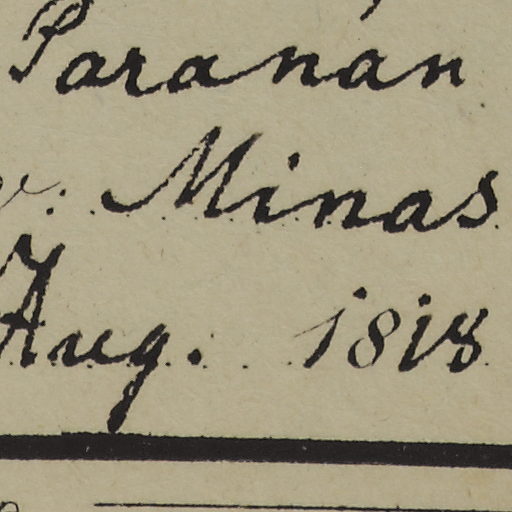 Paranan
v. Minas
Aug. 1818